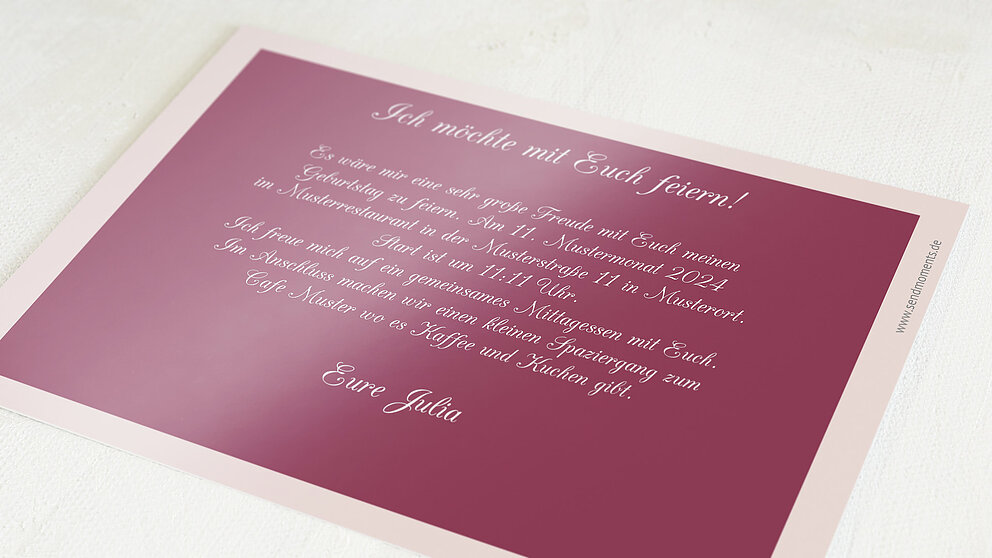 Ich möchte mit Euch feiern!
Es wäre mir eine sehr große Freude mit Euch meinen
Geburtstag zu feiern. Am 11. Mustermonat 2024
im Musterrestaurant in der Musterstraße 11 in Musterort.
Start ist um 11:11 Uhr.
Ich freue mich auf ein gemeinsames Mittagessen mit Euch.
Im Anschluss machen wir einen kleinen Spaziergang zum
Cafe Muster wo es Kaffee und Kuchen gibt.
Eure Julia
www.sendmoments.de